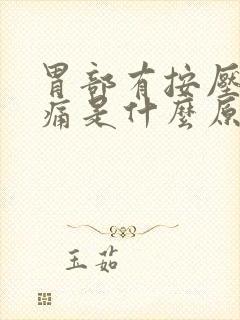 胃部有按壓
痛是什麼原
玉茹